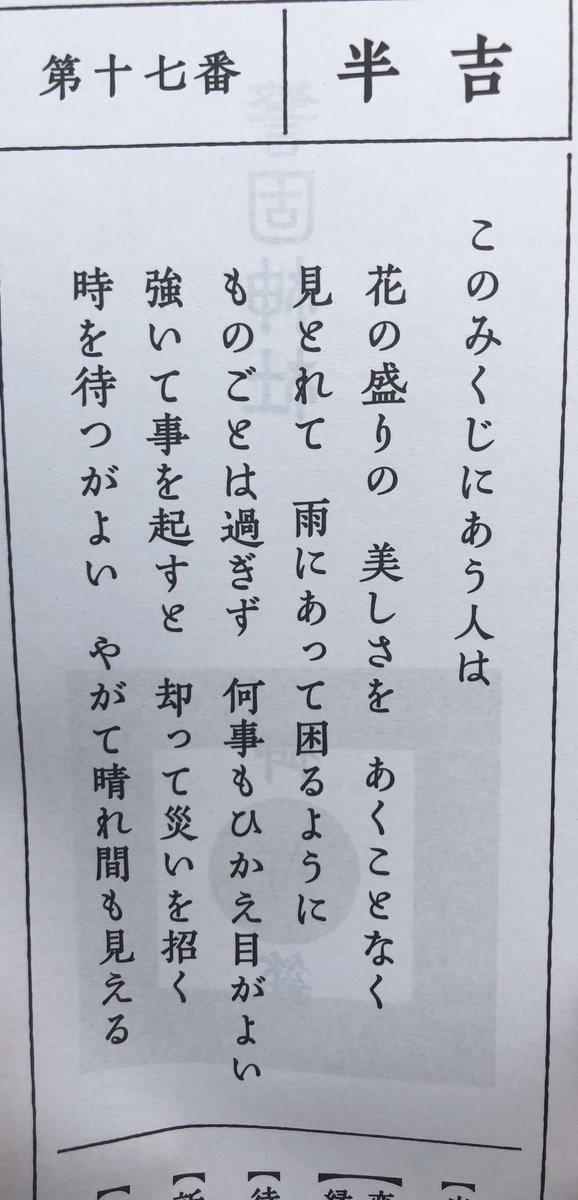 第十七番
半吉
このみくじにあう人は
花の盛りの　美しさを　あくことなく
見とれて　雨にあって困るように
ものごとは過ぎず　何事もひかえ目がよい
強いて事を起すと　却って災いを招く
時を待つがよい　やがて晴れ間も見える